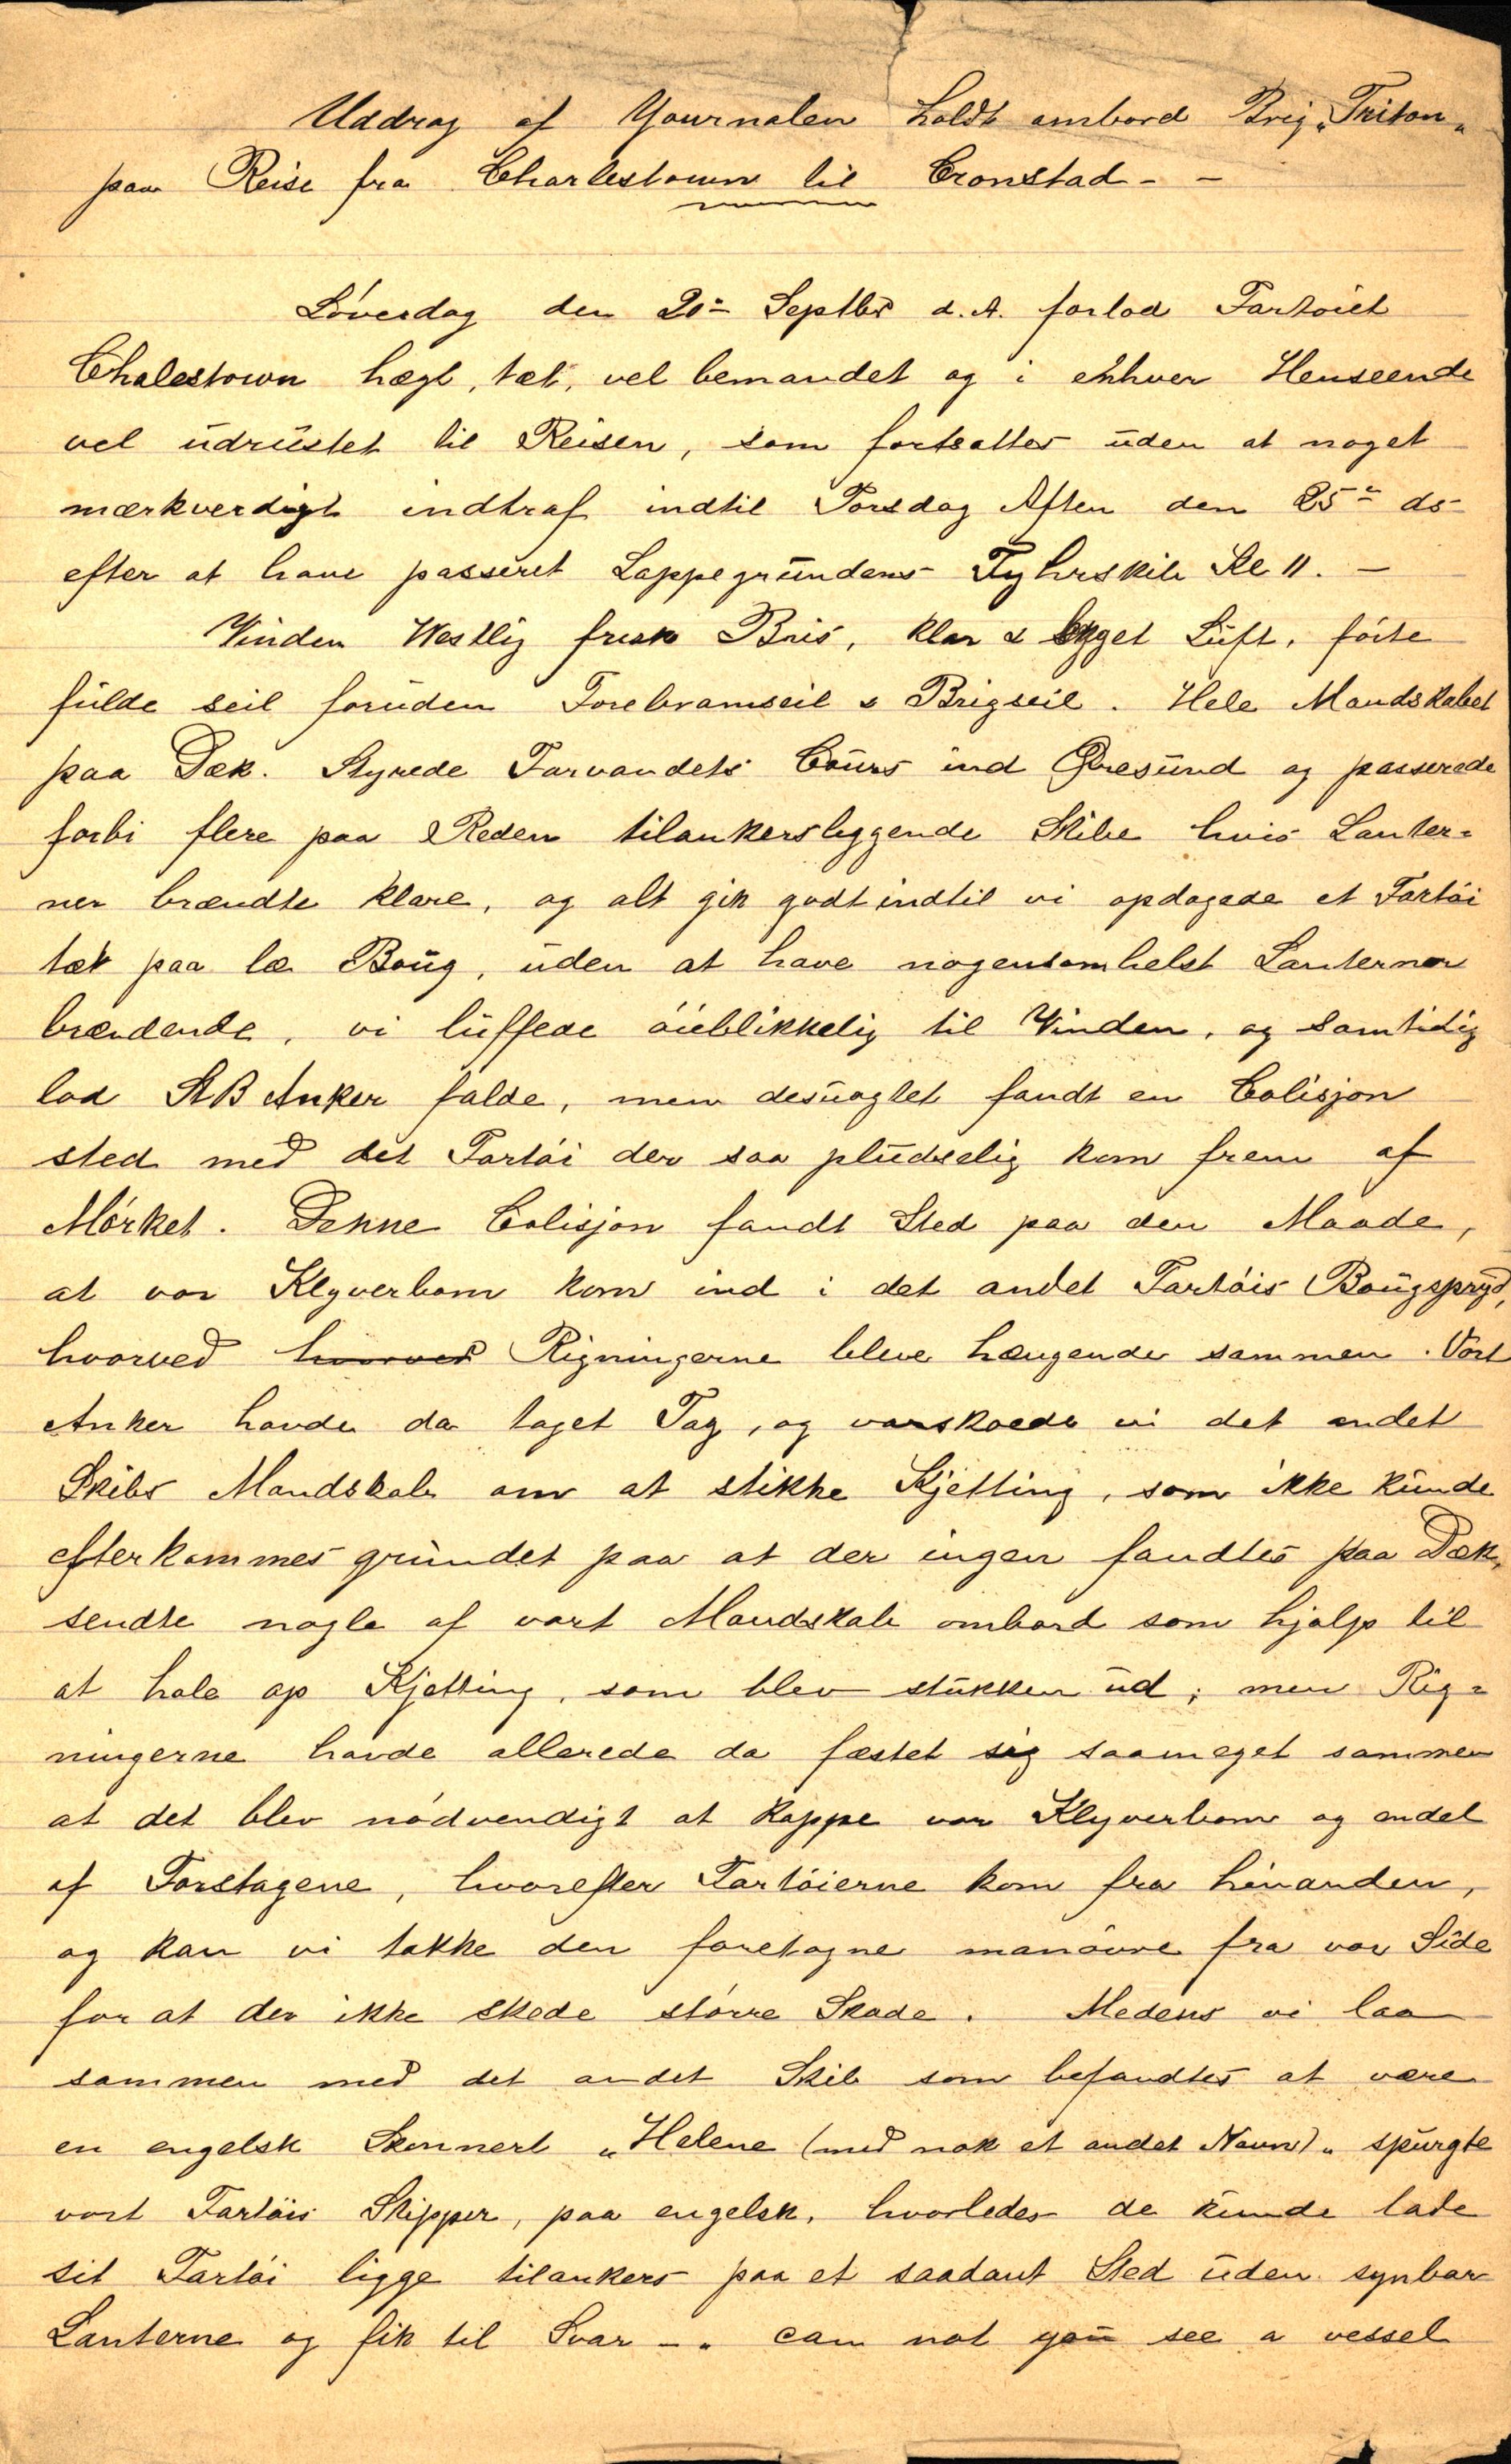 Uddrag af Yournalen holdt ombord Brig „Triton„
paa Reise fra Charlestown til Cronstad - -
Löverdag den 20de Septbr d. A. forlod Fartöiet
Chalestown hægt, tæt, vel bemandet og i enhver Henseende
vel udrustet til Reisen, som fortsattes uden at noget
mærkverdigt indtraf indtil Torsdag Aften den 25de ds
efter at have passeret Lappegrundens Fyhrskib Kl 11. -
Vinden Westlig frisk Bris, klar & skyet Luft, förte
fulde seil foruden Forebramseil & Brigseil. Hele Mandskabet
paa Dæk. Styrede Farvandets Cours ind Öresund og passerede
forbi flere paa Reden tilankersliggende Skibe hvis Lanter=
ner brændte klare, og alt gik godt indtil vi opdagede et Fartöi
tæt paa læ Boug, uden at have nogensomhelst Lanterner
brændende, vi luffede öieblikkelig til Vinden, og samtidig
lod StB Anker falde, men desuagtet fandt en Colisjon
sted med det Fartöi der saa pludselig kom frem af
Mörket. Denne Colisjon fandt Sted paa den Maade,
at vor Klyverbom kom ind i det andet Fartöis Bougspryd,
hvorved hvorved Rigningerne bleve hængende sammen. Vort
Anker havde da taget Tag, og varskoede vi det andet
Skibs Mandskab om at stikke Kjetting, som ikke kunde
efterkommes grundet paa at der ingen fandtes paa Dæk,
sendte nogle af vort Mandskab ombord som hjalp til
at hale op Kjetting, som blev stukken ud; men Rig=
ningerne havde allerede da fæstet sig saameget sammen
at det blev nödvendigt at kappe vor Klyverbom og endel
af Forstagene, hvorefter Fartöierne kom fra hinanden,
og kan vi takke den foretagne manövre fra vor Side
for at der ikke skede större Skade. Medens vi laa
sammen med det andet Skib som befandtes at være
en engelsk Skonnert „Helene (med nok et andet Navn)„ spurgte
vort Fartöis Skipper, paa engelsk, hvorledes de kunde lade
sit Fartöi ligge tilankers paa et saadant Sted uden synbar
Lanterne og fik til Svar - „ can not you see a vessel